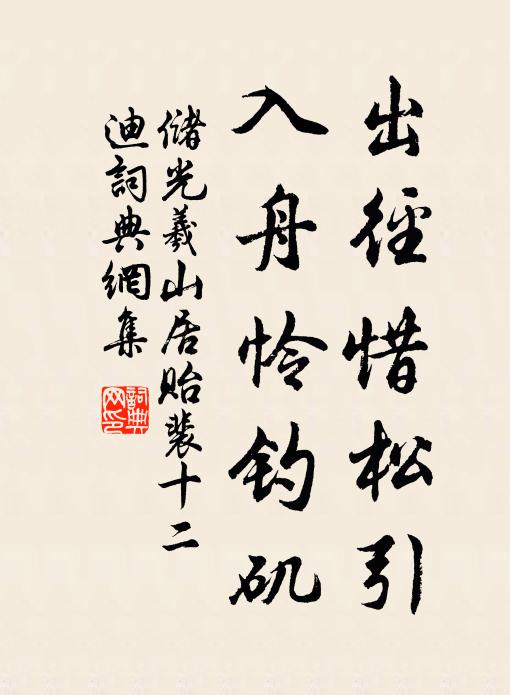 出径惜松引
入舟怜钓矶
储光羲山居贻裴十二
迪词典网集
词典网印